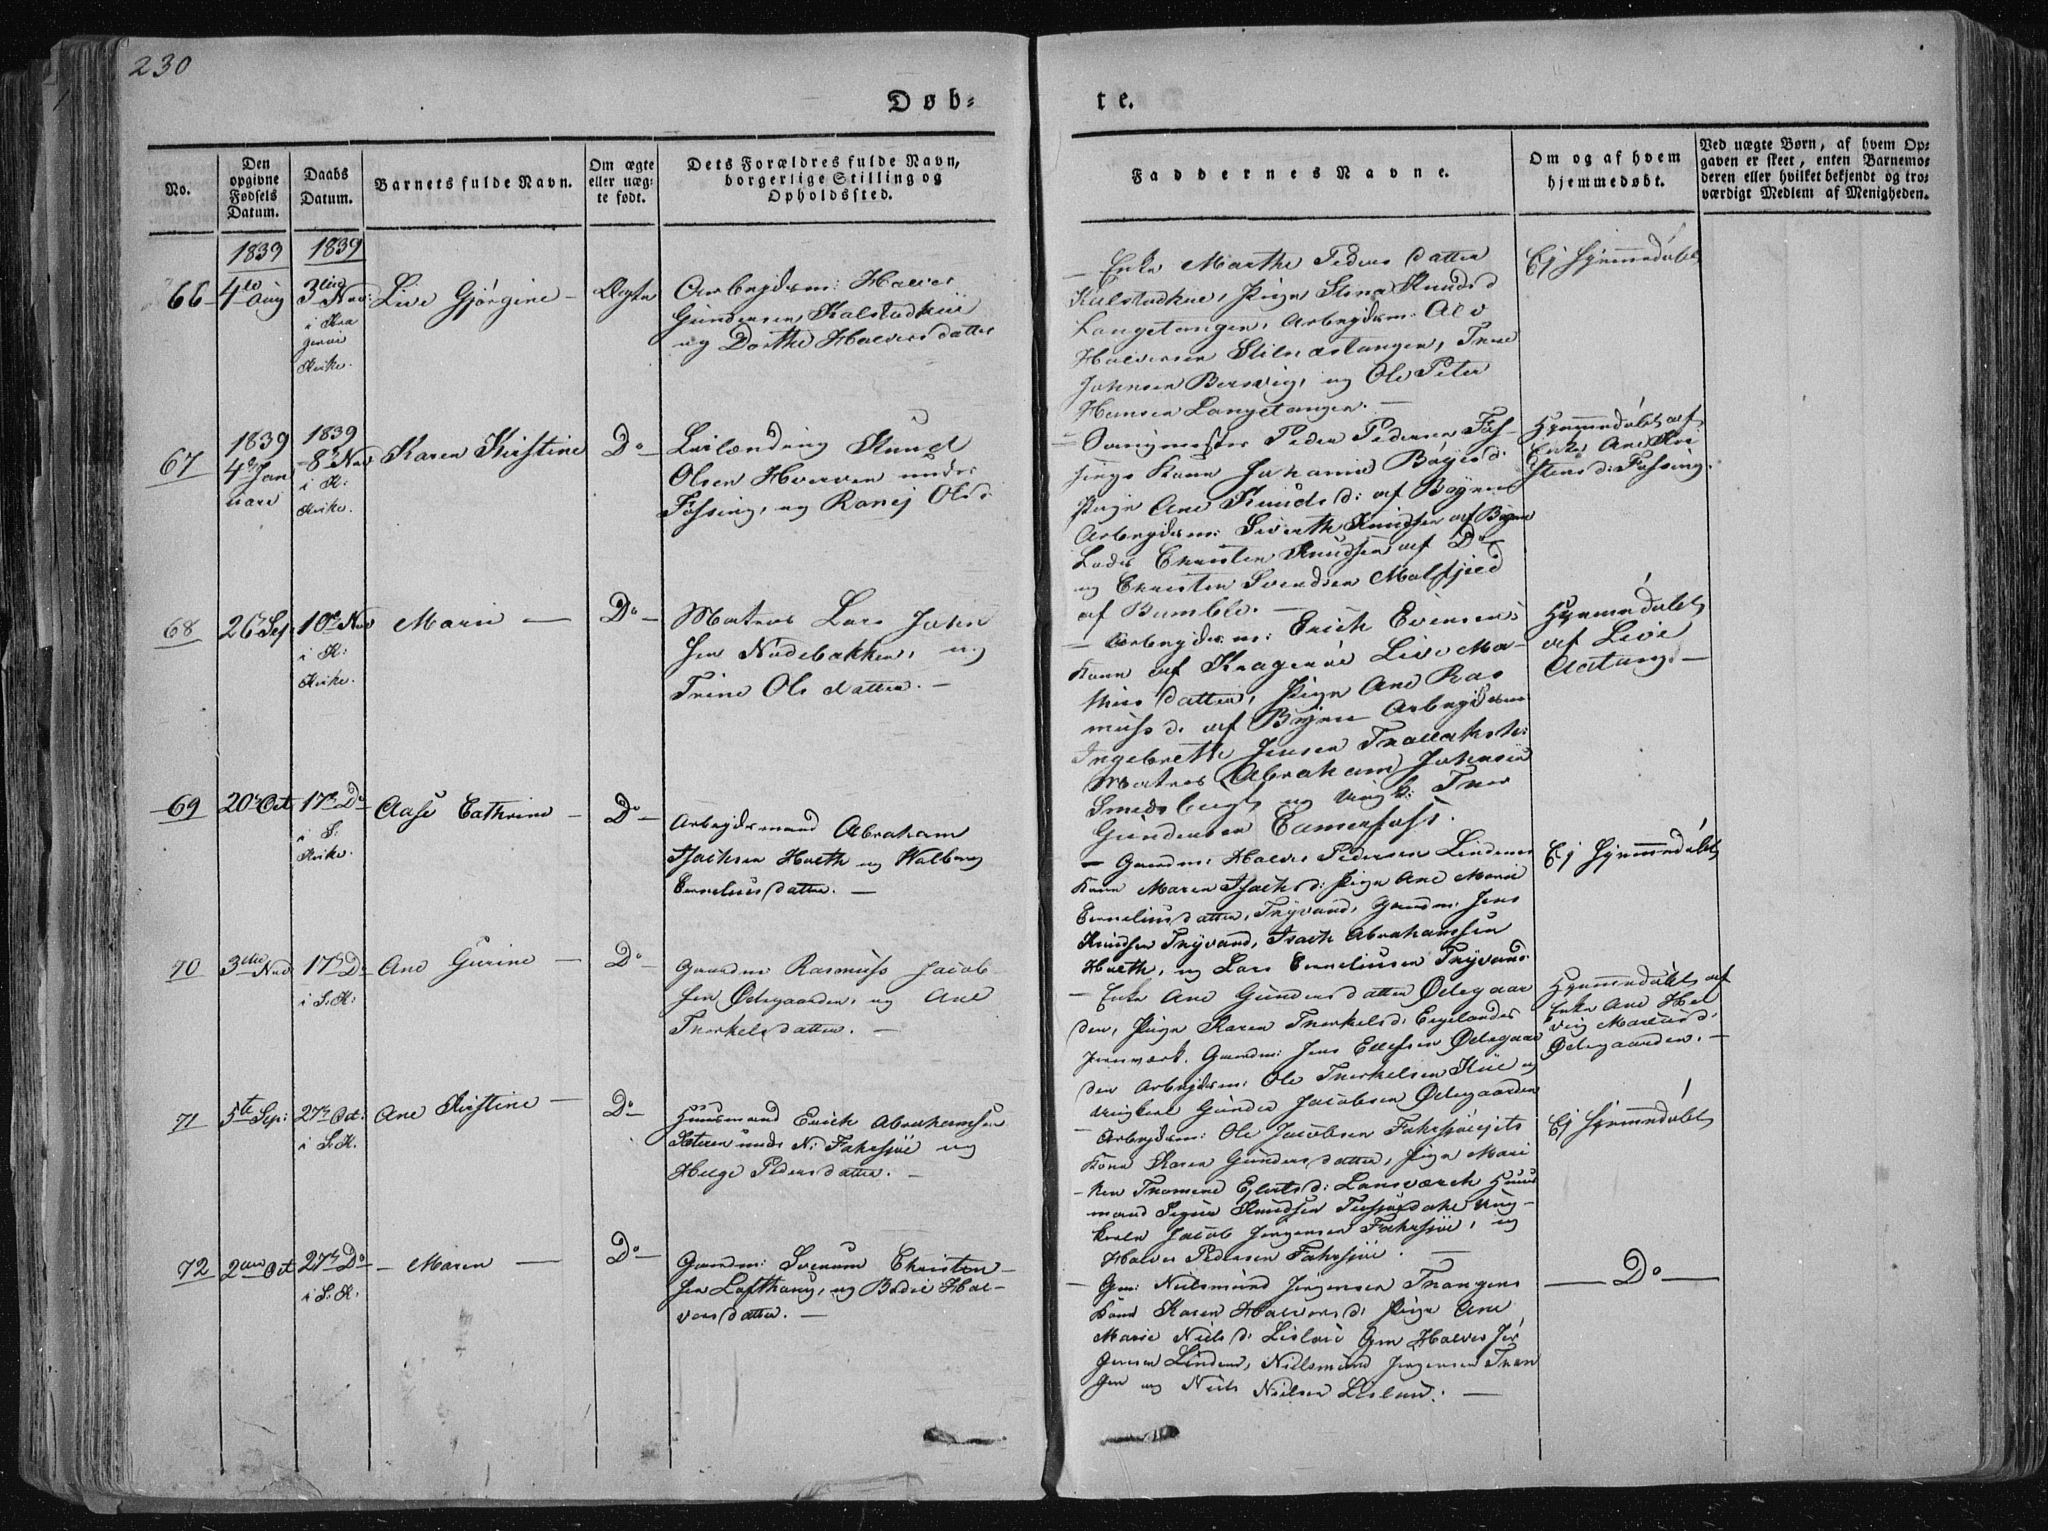 230
Døb=
te.
No.
Den opgivne Fødsels Datum.
Daabs Datum.
Barnets fulde Navn.
Om ægte eller uæg= te født.
Dets Forældres fulde Navn, borgerlige Stilling og Opholdssted.
Faddernes Navne.
Om og af hvem hjemmedøbt.
Ved uægte Børn, af hvem Op= gaven er skeet, enten Barnemo= deren eller hvilket bekjendt og tro= værdigt Medlem af Menigheden.
1839
1839
66
4de Aug
3die Nov:
i Kra
gerøe
Kirke.
Live Gjørgine
Ægte
Arbeydsm: Halvor
Gundersen Kalstadkiil
og Dorthe Halvorsdatter
Enke Marthe Pedersdatter
Kalstadkiil, Pige Stina Knudsd
Langetangen, Arbeydsm: Alv
Halvorsen Stilnæstangen,
Johnsen Bersvig, og Ole Peter
Hansen Langetangen.
Ej Hjemmedøbt
67
1839
4de Jan
uari
1839
8de Nov
i K:
Kirke.
Karen Kirstine
Do
Lods Knud
Olsen under
Fossing, og Olsd:
Peder Pedersen Fos-
sings Kone Johanne Bøjesd.
Pige Ane Knudsd: af
Arbeydsm: Siverth Knudsen af
Lods Christen Knudsen af Do
og Christen Svendsen
af Bamble.
Hjemmedøbt af
Enke Ane Kri
stensd: Fossing.
68
26de Sep
10de Nov
i K:
Kirke.
Maren
Do
Matros Lars John
sen Nødebakken, og
Trine Olsdatter.
Arbeydsm: Erich Evensens
Kone af Kragerøe Live Ma-
thisdatter, Pige Ane Ras
musd. af Arbeydsm
Ingebreth Jensen
Matros Abraham Johnsen
og Ungk: Thor
Gundersen
Hjemmedøbt
af Live
Aatang.
69
20de Oct
17de Do
i S:
Kirke.
Aase Cathrine
Do
Arbeydsmand Abraham
Isachsen Holth og Walborg
Corneliusdatter.
Gaardm: Halvor Pedersen Lindens
Kone Maren Isachsd: Pige Ane Marie
Corneliusdatter, Tryvand, Gaardm: Jens
Knudsen Tryvand, Isach Abrahamsen
Holth, og Lars Corneliusen Tryvand.
Ej Hjemmedøbt
70
3die Nov
17de Do
i S: K:
Ane Gurine
Do
Gaardm: Rasmus Jacob
sen Ødegaarden, og Ane
Thorkelsdatter.
Enke Ane Gundersdatter Ødegaar
den, Pige Karen Thorkelsd: Egelands
Jernværk. Gaardm: Jens Ellefsen Ødegaar
den Arbeydsm: Ole Thorkelsen og
Ungkarl Gunder Jacobsen Ødegaarden
Hjemmedøbt af
Enke Ane Hel
vig Marcusd:
Ødegaarden.
71
5te Sep:
27de Oct:
i S: K.
Ane Kirstine
Do
Huusmand Erich Abrahamsen
under N: Farsjøe og
Helge Pedersdatter.
Arbeydsm: Ole Jacobsen Farsjøeijets
Kone Karen Gundersdatter, Pige Mari
ken Thomine Egertsd: Huus
mand Knudsen Ung-
karl Jacob Jørgensen Farsjøe, og
Halvor Pedersen Farsjøe.
Ej Hjemmedøbt
72
2den Oct
27de Do
i S: K.
Maren
Do
Gaardm: Christen
sen Lofthaug, og Bodil Hal-
vorsdatter.
Gm: Nielsmund Jørgensen Trangens
Kone Karen Halvorsd: Pige Ane
Marie Nielsd: Gm Halvor Jør
gensen Linden, Nielsmund Jørgensen Tran
gen og Niels Nielsen
Do